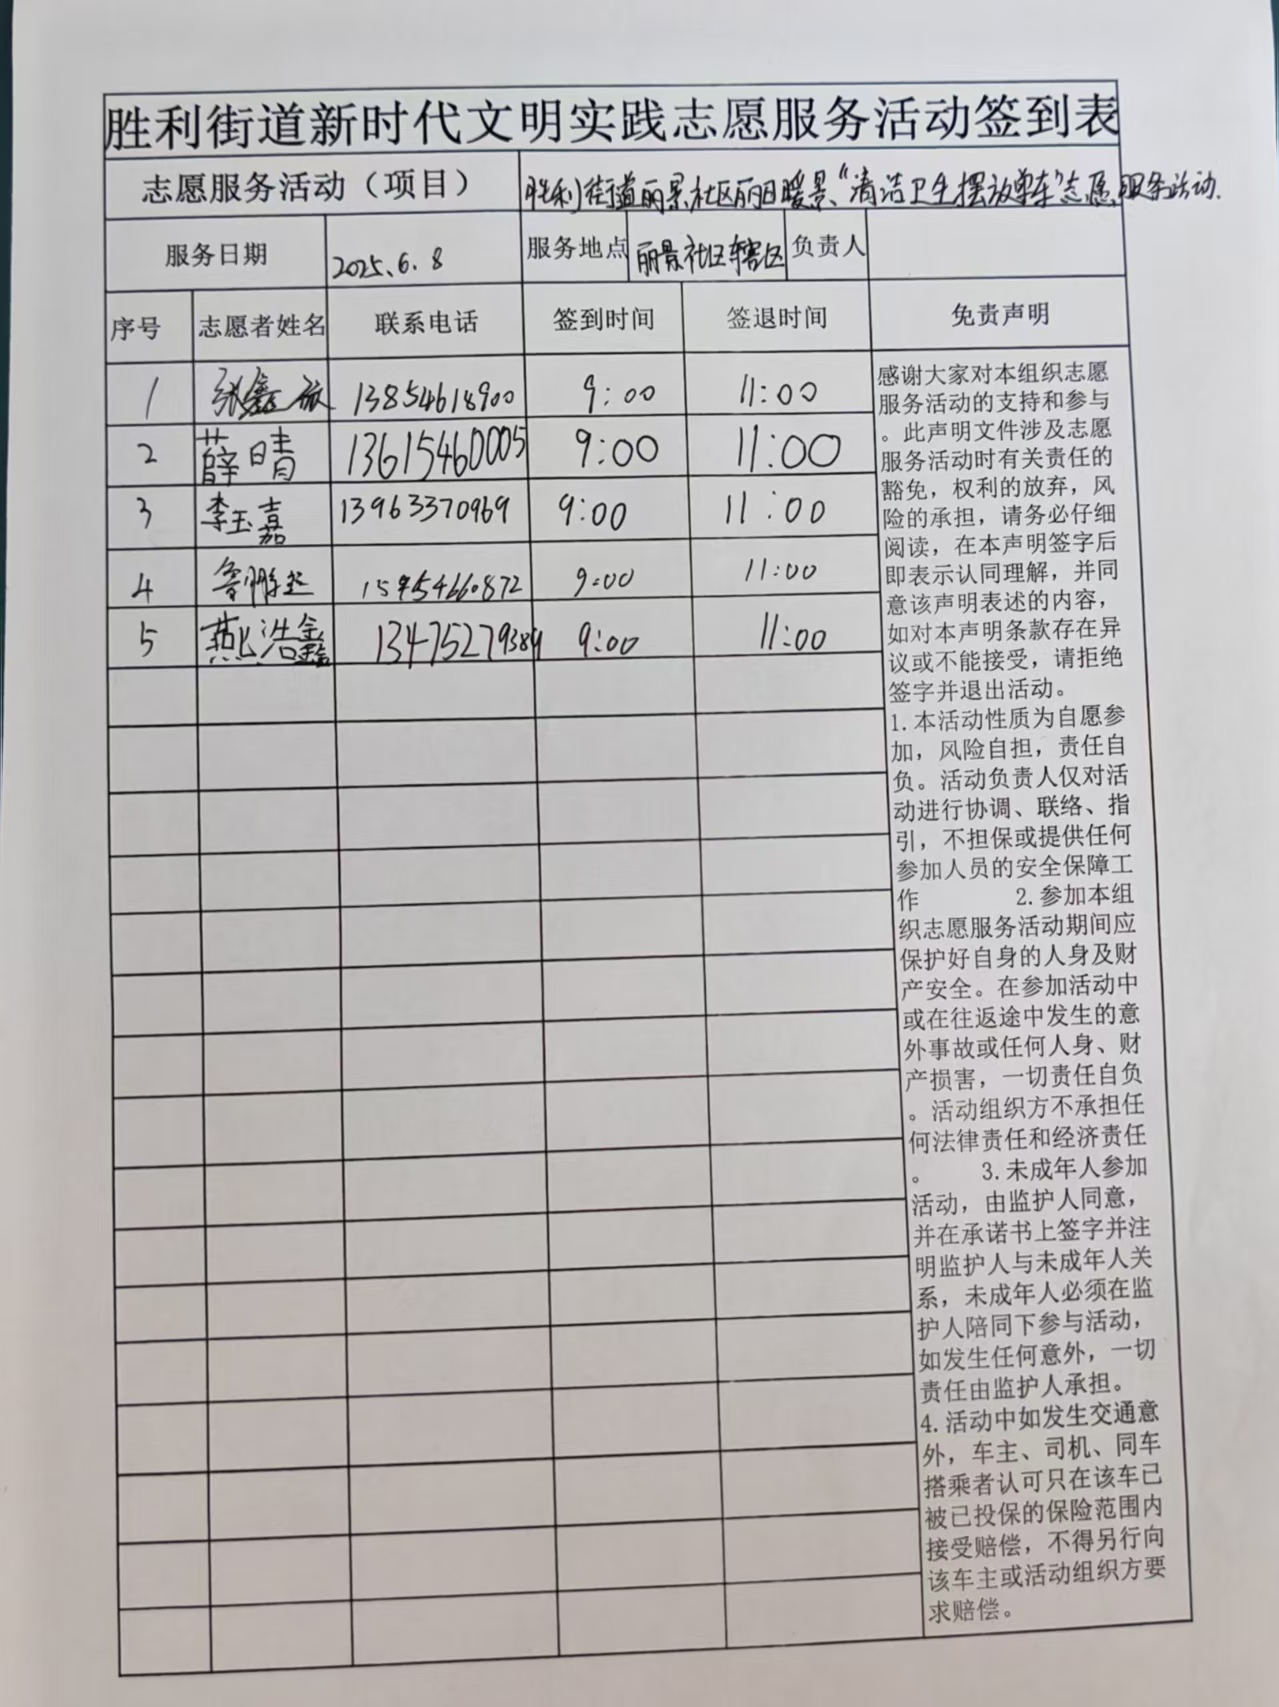 胜利街道新时代文明实践志愿服务活动签到表
志愿服务活动（项目） 胜利街道丽景社区丽日暖景、“清洁卫生摆放单车”志愿服务活动.
服务日期 2025.6.8 服务地点 丽景社区辖区 负责人
序号 志愿者姓名 联系电话 签到时间 签退时间 免责声明
1 张鑫 13854618900 9:00 11:00
2 薛晴 13615460005 9:00 11:00
3 李玉嘉 13963370969 9:00 11:00
4 15954660872 9:00 11:00
5 燕浩鑫 13475279389 9:00 11:00
感谢大家对本组织志愿
服务活动的支持和参与
。此声明文件涉及志愿
服务活动时有关责任的
豁免，权利的放弃，风
险的承担，请务必仔细
阅读，在本声明签字后
即表示认同理解，并同
意该声明表述的内容，
如对本声明条款存在异
议或不能接受，请拒绝
签字并退出活动。
1.本活动性质为自愿参
加，风险自担，责任自
负。活动负责人仅对活
动进行协调、联络、指
引，不担保或提供任何
参加人员的安全保障工
作 2.参加本组
织志愿服务活动期间应
保护好自身的人身及财
产安全。在参加活动中
或在往返途中发生的意
外事故或任何人身、财
产损害，一切责任自负
。活动组织方不承担任
何法律责任和经济责任
。 3.未成年人参加
活动，由监护人同意，
并在承诺书上签字并注
明监护人与未成年人关
系，未成年人必须在监
护人陪同下参与活动，
如发生任何意外，一切
责任由监护人承担。
4.活动中如发生交通意
外，车主、司机、同车
搭乘者认可只在该车已
被已投保的保险范围内
接受赔偿，不得另行向
该车主或活动组织方要
求赔偿。